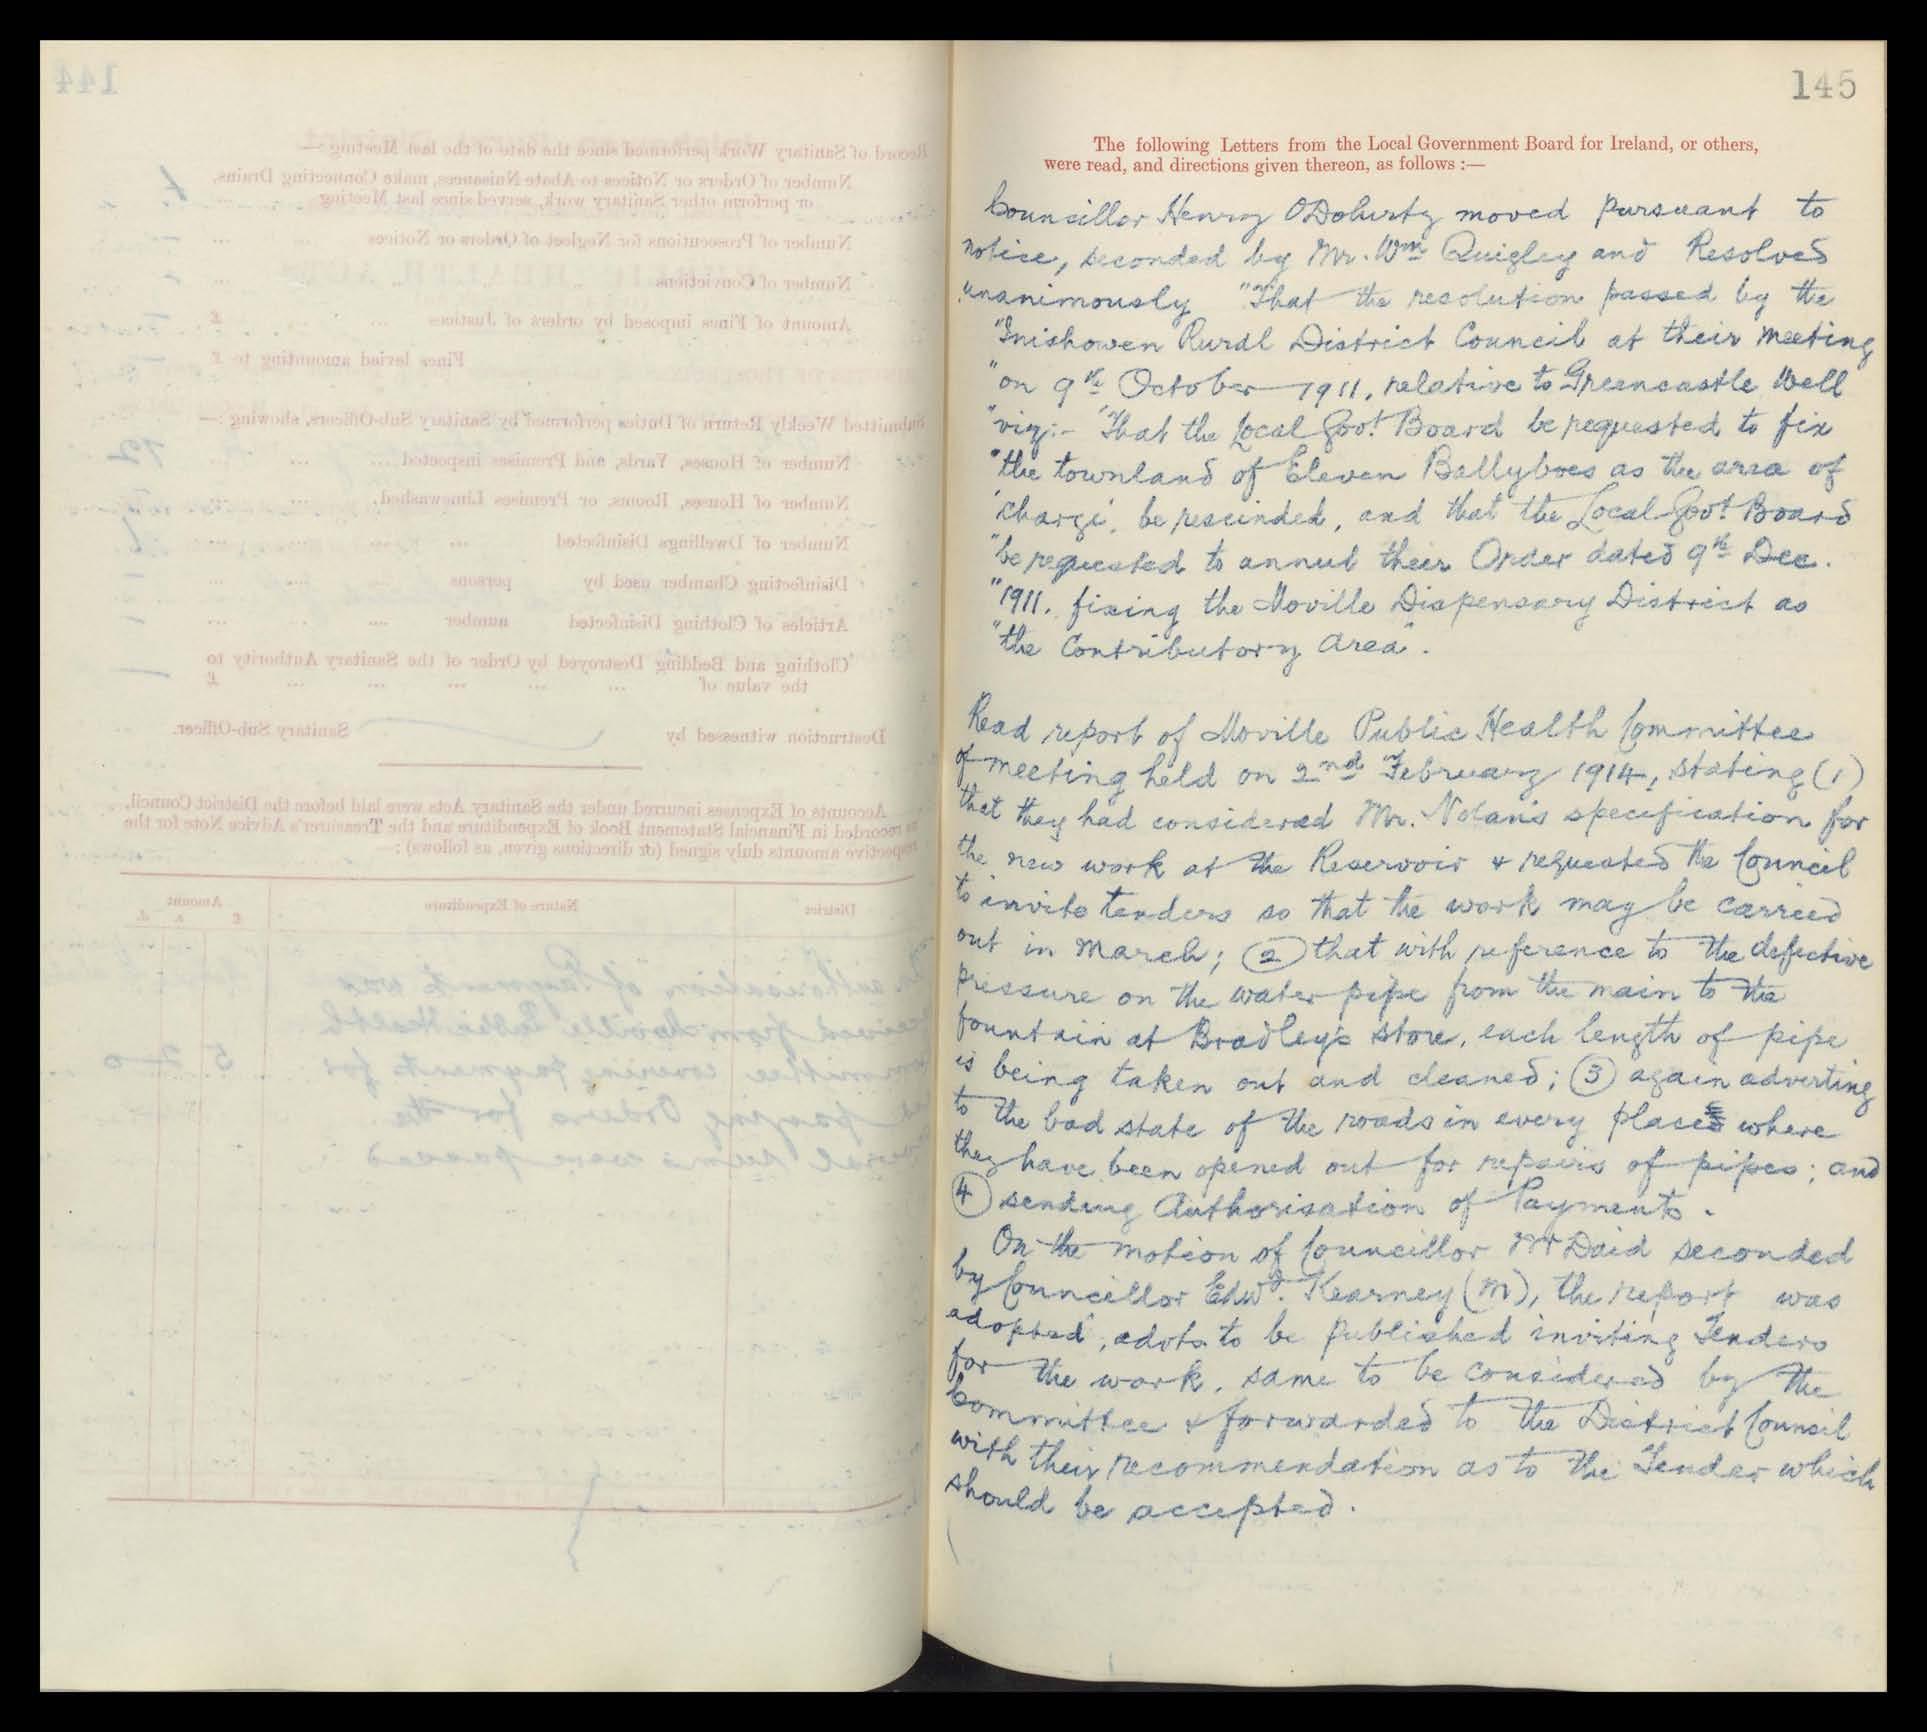 145
The following Letters from the Local Government Board for Ireland, or others,
were read, and directions given thereon, as follows :—
Councillor Henry O'Doherty moved pursuant to
notice, seconded by Mr. Wm Quigley and Resolved
unanimously "That the resolution passed by the
"Inishowen Rural District Council at their meeting
"on 9th October 1911, relative to Greencastle Well
"viz:- 'That the Local Govt Board be requested to fix
"the townland of Eleven Ballyboes as the area of
'charge', be rescinded, and that the Local Govt Board
"be requested to annul their Order dated 9th Dec.
"1911, fixing the Moville Dispensary District as
"the Contributory Area".
Read report of Moville Public Health Committee
of meeting held on 2nd February 1914, stating (1)
that they had considered Mr. Nolan's specification for
the new work at the Reservoir & requested the Council
to invite tenders so that the work may be carried
out in March; (2) that with reference to the defective
pressure on the water pipe from the main to the
fountain at Bradley's store, each length of pipe
is being taken out and cleaned; (3) again adverting
to the bad state of the roads in every place where
they have been opened out for repairs of pipes; and
(4) sending Authorisation of Payments.
On the motion of Councillor McDaid seconded
by Councillor Edwd. Kearney (M), the report was
adopted, advts. to be published inviting Tenders
for the work, same to be considered by the
Committee & forwarded to the District Council
with their recommendation as to the Tender which
should be accepted.